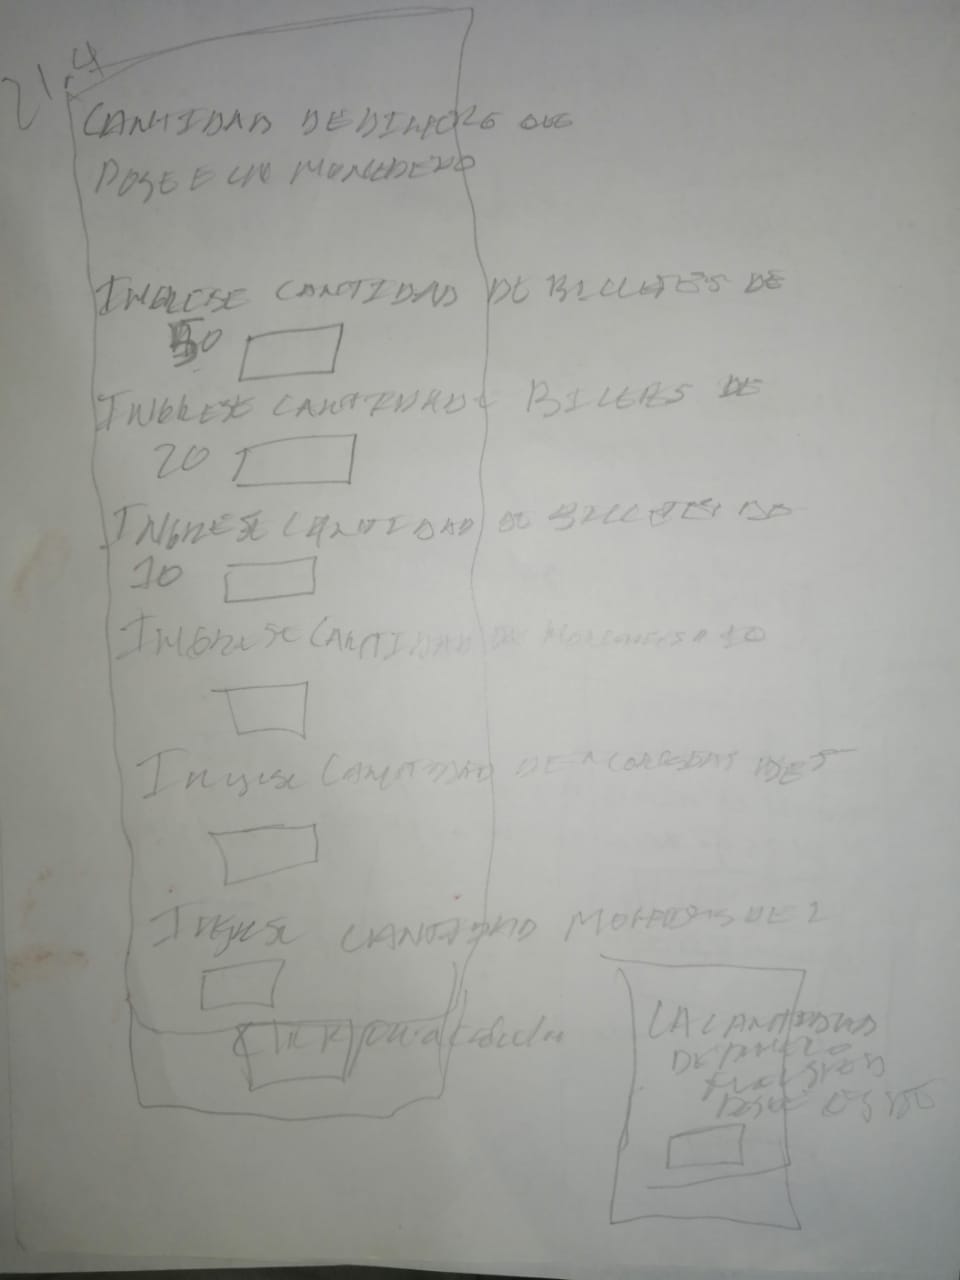 21.4
CANTIDAD DE DINERO QUE
POSEE UN MONEDERO
INGRESE CANTIDAD DE BILLETES DE
50
INGRESE CANTIDAD DE BILLETES DE
20
INGRESE CANTIDAD DE BILLETES DE
10
INGRESE CANTIDAD DE MONEDAS 10
Ingrese CANTIDAD DE MONEDAS DE 5
Ingrese CANTIDAD MONEDAS DE 2
Click para calcular
LA CANTIDAD
DE DINERO
POSEE ES DE